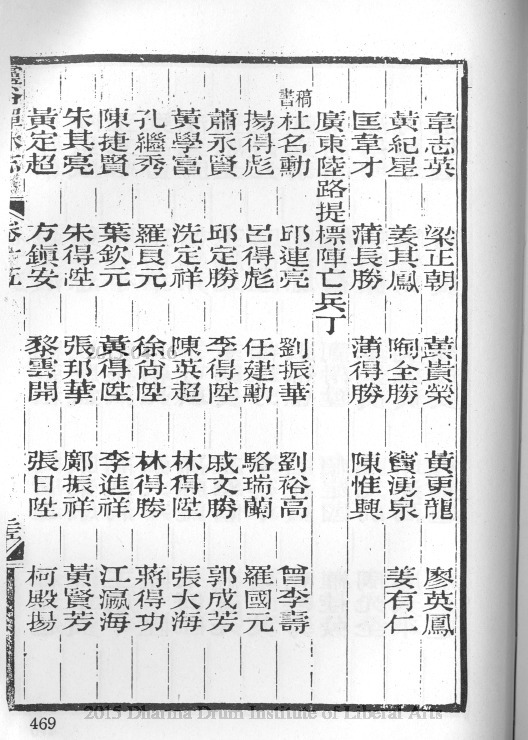 韋志英　梁正朝　黃貴榮　黃更龍　廖英鳳
黃紀星　姜其鳳　全勝　竇湧泉　姜有仁
匡韋才　蒲長勝　蒲得勝　陳惟興
廣東陸路提標陣亡兵丁
書稿
杜名勳　邱連亮　劉振華　劉裕高　曾李壽
揚得彪　呂得彪　任建勳　駱瑞蘭　羅國元
蕭永賢　邱定勝　李得陞　戚文勝　郭成芳
黃學富　洗定祥　陳英超　林得陞　張大海
孔繼秀　羅頁元　徐尙陞　林得勝　蔣得功
陳捷賢　葉欽元　黃得陞　李進祥　江瀛海
朱其亮　朱得陞　張邦華　鄺振祥　黃賢芳
黃定超　方鎭安　黎雲開　張日陞　柯殿揚
靈谷禪林志
469
2015 Dharma Drum Institute of Liberal Arts